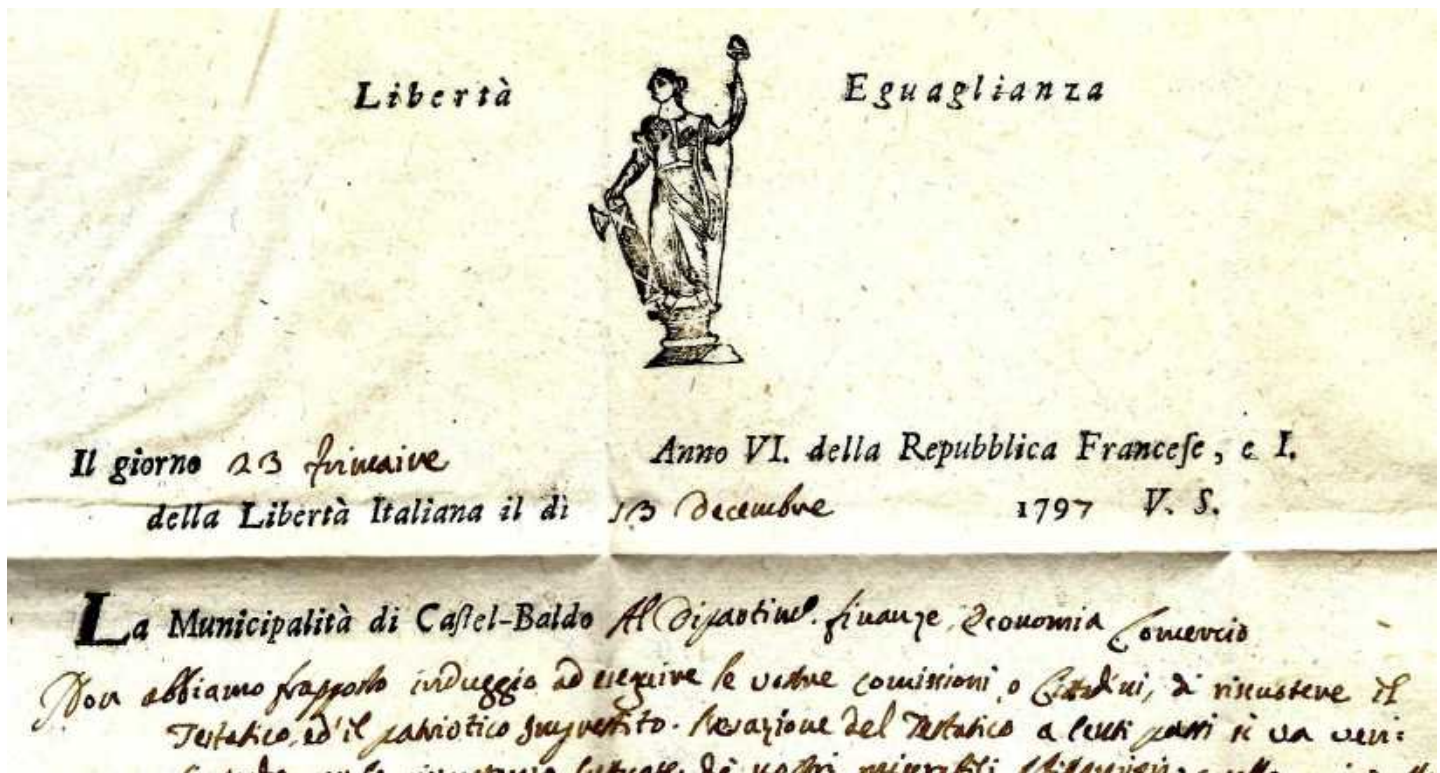 Libertà Eguaglianza
Il giorno 23 frimaire Anno VI. della Repubblica Franceſe, e I.
della Libertà Italiana il dì 13 Decembre 1797 V. S.
La Municipalità di Caſtel-Baldo Al Dipartim. finanze, Economia Comercio
Non abbiamo frapposto induggio ad eseguire le vostre comissioni, o Cittadini, di riscuotere il
Testatico, ed' il patriotico Imprestito. del Testatico a lenti passi si va veri:
miserabili